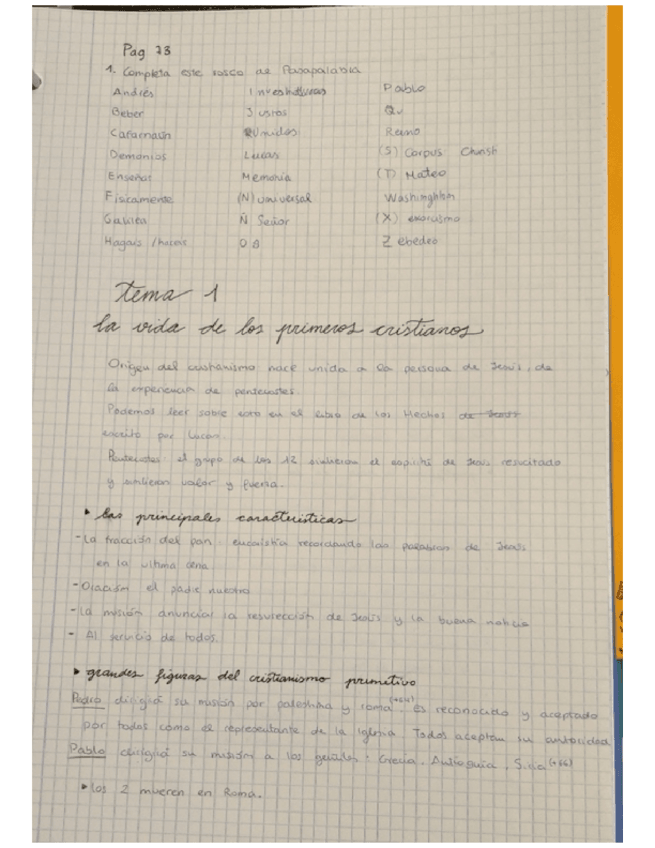 Pag 73
1. Completa este rosco de Pasapalabra
Andrés
Beber
Cafarnaún
Demonios
Enseñar
Físicamente
Galilea
Hagáis / hacéis
Investiduras
Justos
Unidos
Lucas
Memoria
(N) universal
Ñ Señor
O
Pablo
Qu
Reino
(S) Corpus Christi
(T) Mateo
Washinghton
(X) exorcismo
Z ebedeo
tema 1
la vida de los primeros cristianos
Origen del cristianismo nace unida a la persona de Jesús, de
la experiencia de pentecostes.
Podemos leer sobre esto en el libro de los Hechos de Jesús
escrito por Lucas.
Pentecostes el grupo de los 12 sintieron el espíritu de Jesús resucitado
y sintieron valor y fuerza.
las principales características
- La fracción del pan: eucaristía recordando las palabras de Jesús
en la última cena
- Oración el padre nuestro
- La misión anunciar la resurección de Jesús y la buena noticia
- Al servicio de todos.
grandes figuras del cristianismo primitivo
Pedro dirigió su misión por palestina y roma (+64). Es reconocido y aceptado
por todos como el representante de la Iglesia. Todos aceptan su autoridad
Pablo dirigió su misión a los gentiles: Grecia, Antioquía, Siria
los 2 mueren en Roma.